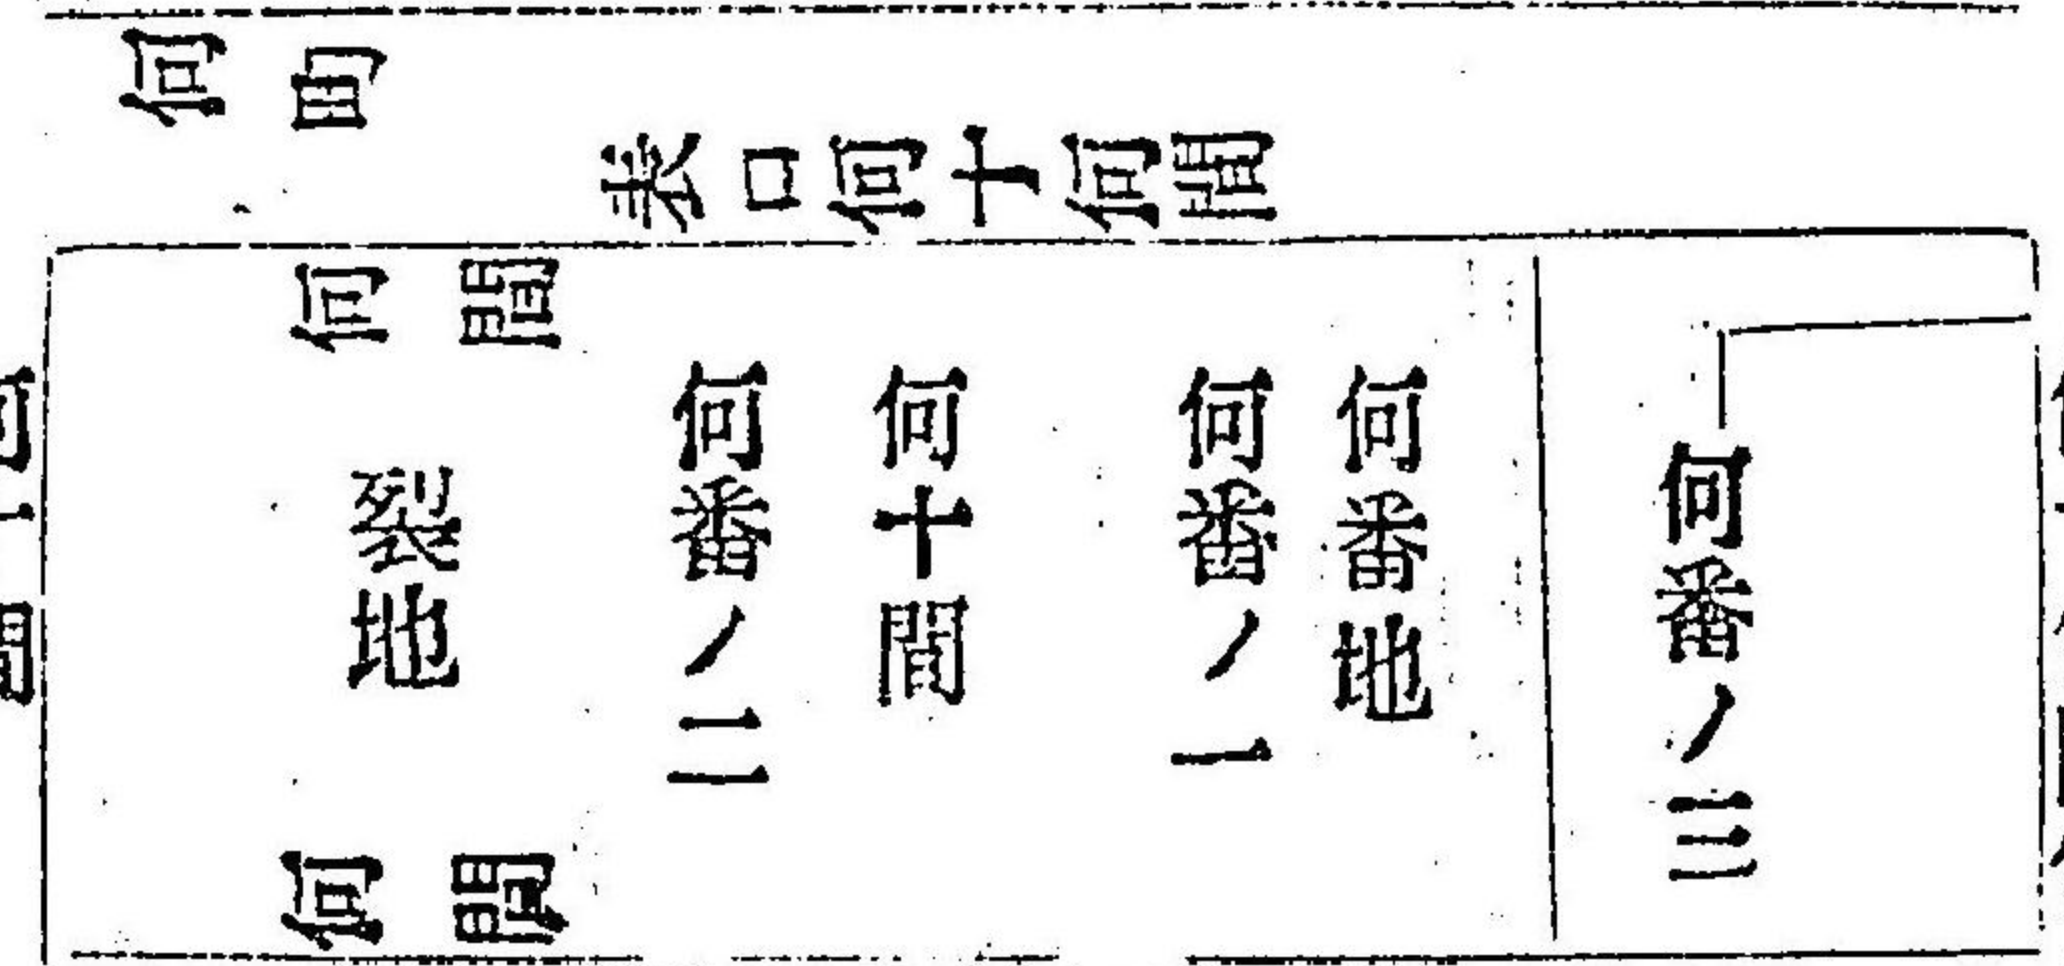 何町
表口何十何間
何番ノ三
何番地
何番ノ一
何十間
何番ノ二
何間
裂地
何間